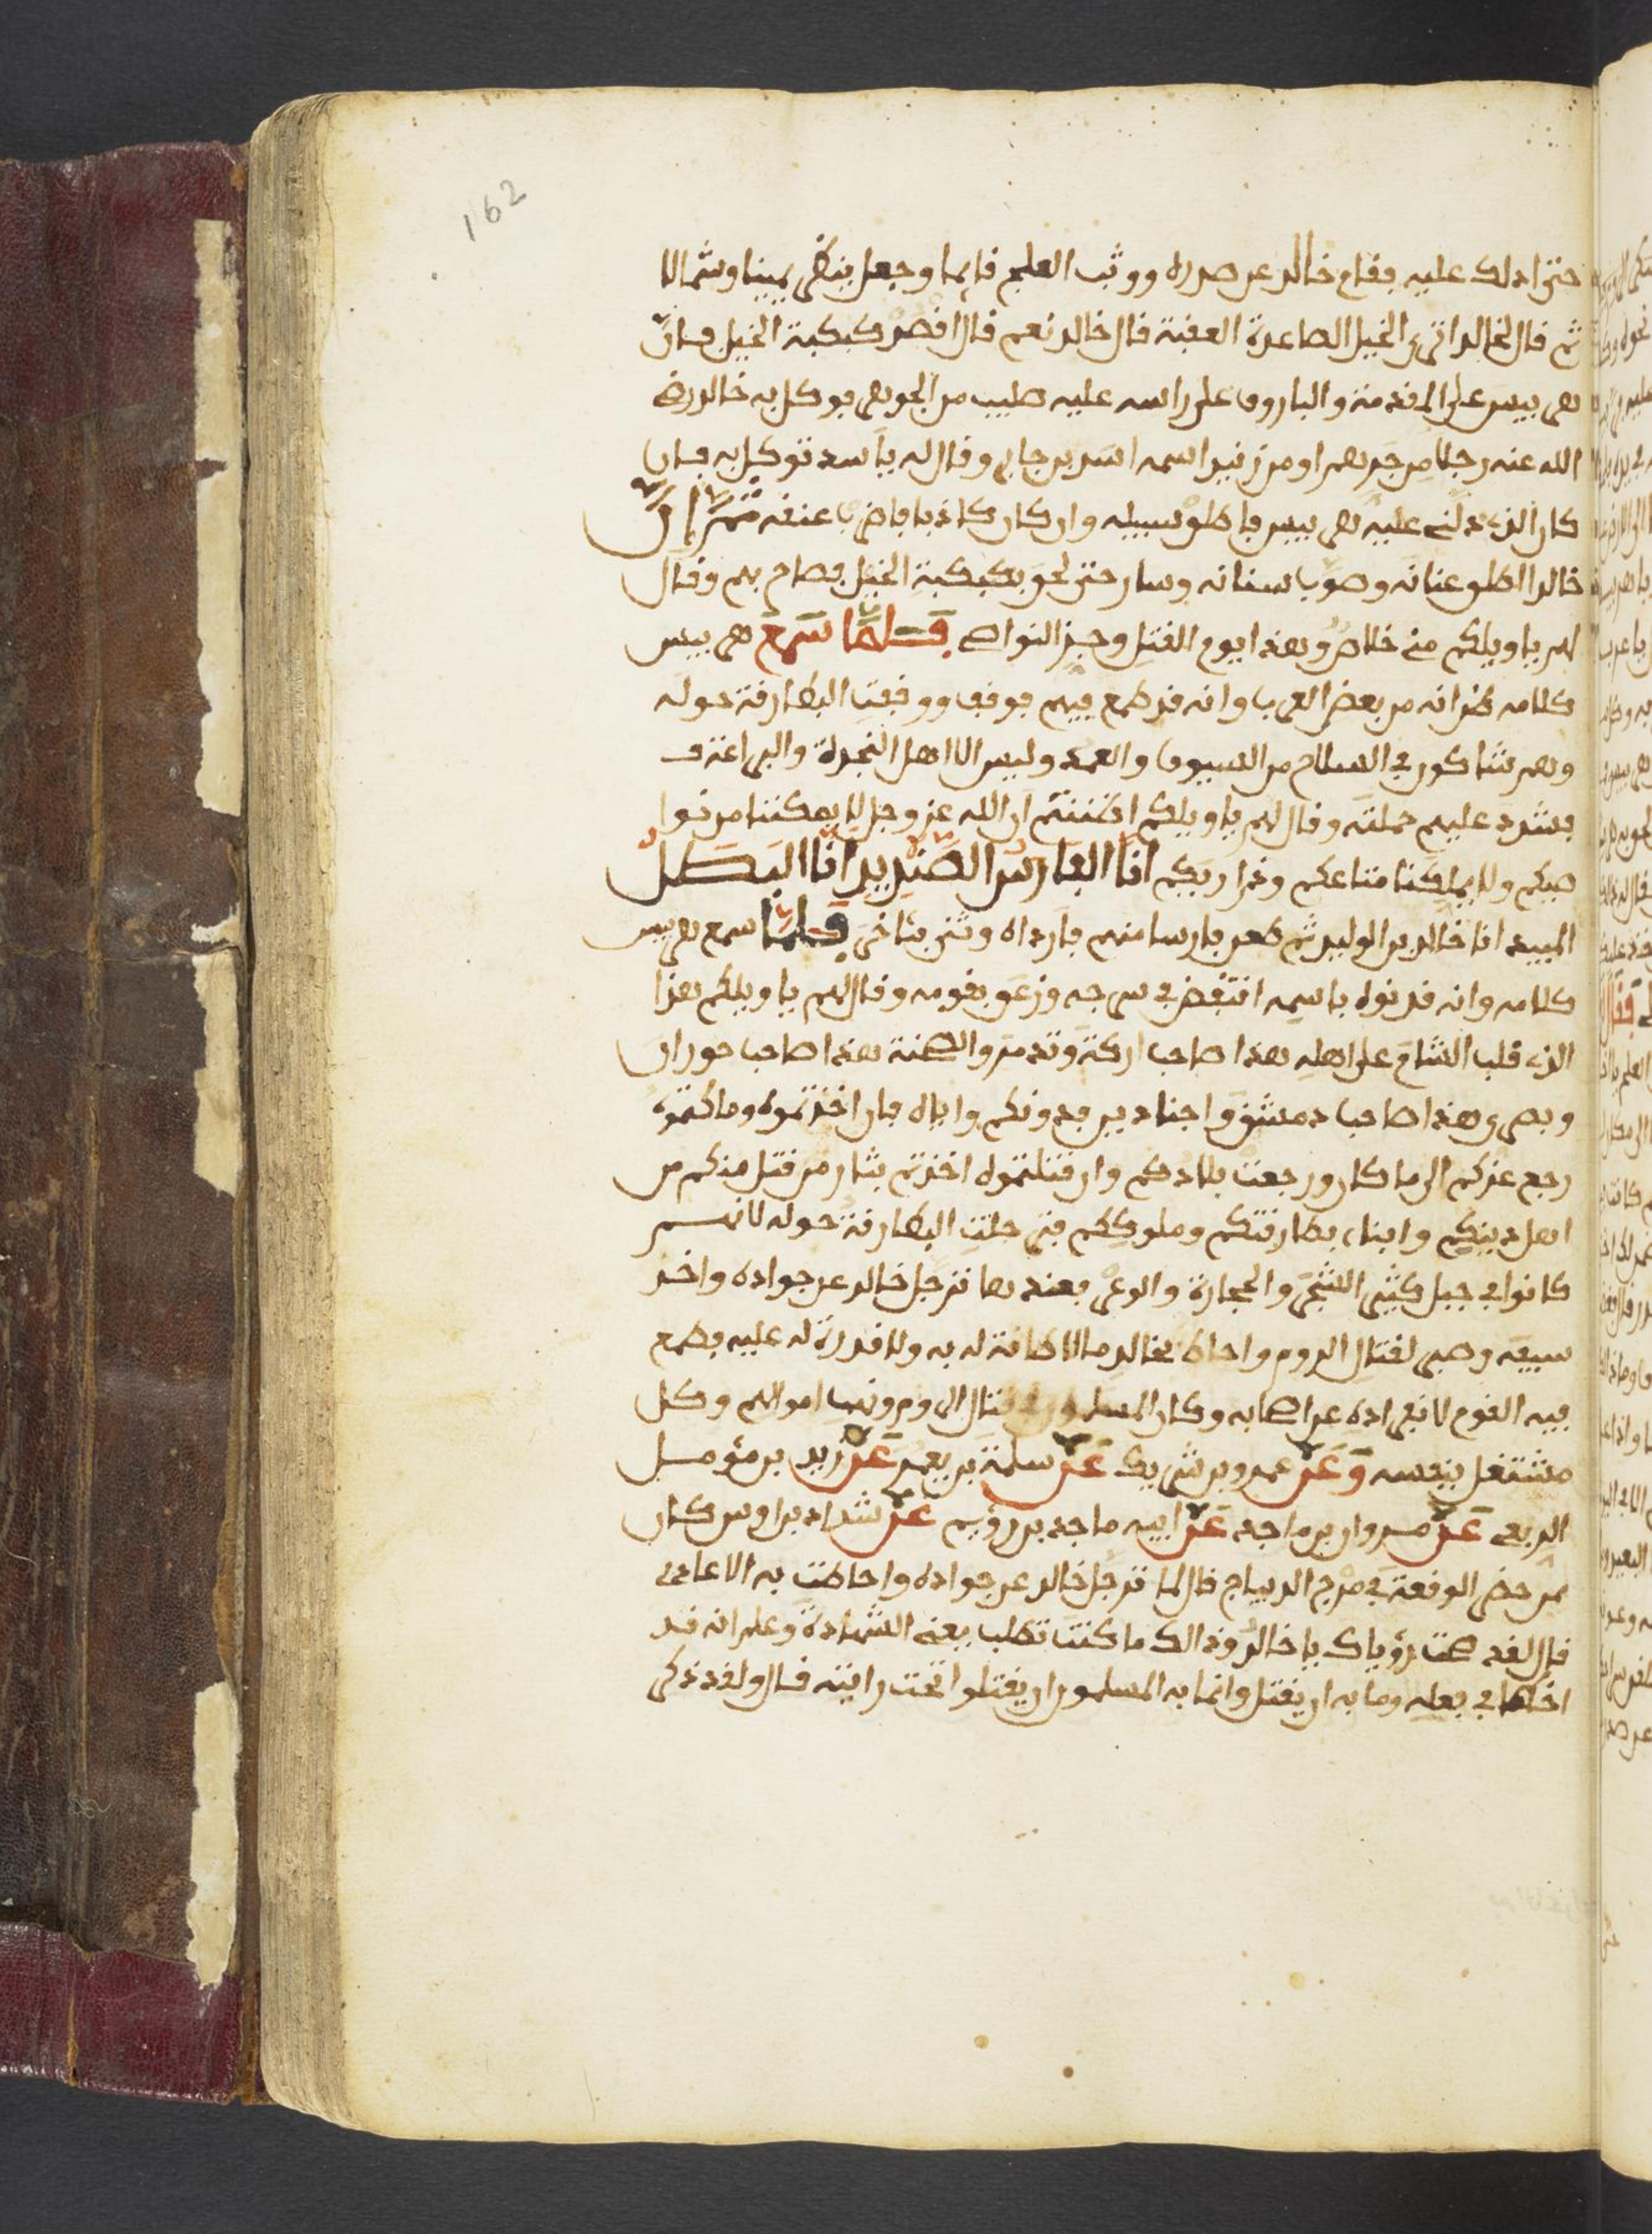 162
حتى ادلك عليه فقام خالد عن صدره ووثب العلج قايما وجعل ينظر يمينا وشمالا
ثم قال لخالد اترى الخيل الصاعدة العقبة قال خالد نعم قال اقصد كبكبة الخيل فان
هربيس على المقدمة والباروق على راسه عليه صليب من الجوهر فوكل به خالد رضي
الله عنه رجلا من زبيد اسمه اسد بن جابر وقال له يا اسد توكل به فان
كان الذي دلني عليه هربيس فاطلق سبيله وان كان كاذبا فاضرب عنقه ثم ان
خالدا اطلق عنانه وصوب سنانه وسار حتى لحق بكبكبة الخيل فصاح بهم وقال
لهم يا ويلكم مني خلاص وهذا يوم القتل وجز النواصي فلما سمع هربيس
كلامه ظن انه من بعض العرب وانه قد طمع فيهم فوقف ووقفت البطارقة حوله
وهم شاكون في السلاح من السيوف والعمد وليس الا اهل النجدة والبراعة
فشد عليهم حملته وقال لهم يا ويلكم اظننتم ان الله عز وجل لا يمكننا من نوا
صيكم ولا يملكنا متاعكم وذراريكم انا الفارس الصنديد انا البطل
المبيد انا خالد بن الوليد ثم طعن فارسا منهم فارداه وثنى بثاخر فلما سمع هربيس
كلامه وانه قد نوه باسمه انتفض في سرجه وزعق بقومه وقال لهم يا ويلكم هذا
الذي قلب الشام على اهله هذا صاحب اركة وتدمر والصخنة هذا صاحب حوران
وبصرى هذا صاحب دمشق واجنادين فدونكم واياه فان اخذتموه وملكتموه
رجع عزكم الى ما كان ورجعت بلادكم وان قتلتموه اخذتم بثار من قتل منكم من
اهل دينكم وابناء بطارقتكم وملوككم فترجلت البطارقة حوله لانهم
كانوا في جبل كثير الشجر والحجارة والوعر فعندها ترجل خالد عن جواده واخذ
سيفه وصبر لقتال الروم واحاط بخالد ما لا طاقة له به ولا قدرة له عليه فطمع
فيه القوم لانفراده عن اصحابه وكان المسلمون في قتال الروم ونهب اموالهم وكل
مشتغل بنفسه وعن عمرو بن شريك عن سلمة بن يعمر عن زيد بن مؤمل
الربعي عن مروان بن ماجد عن ابيه ماجد بن رؤيم عن شداد بن اوس كان
ممن حضر الوقعة في مرج الديباج قال لما ترجل خالد عن جواده واحاطت به الاعاجم
قال لقد صحت رؤياك يا خالد وذالك ما كنت تطلب يعني الشهادة وعلم انه قد
اخطا في فعله وما به ان يقتل وانما به المسلمون ان يقتلوا تحت رايته قال ولقد ذكر